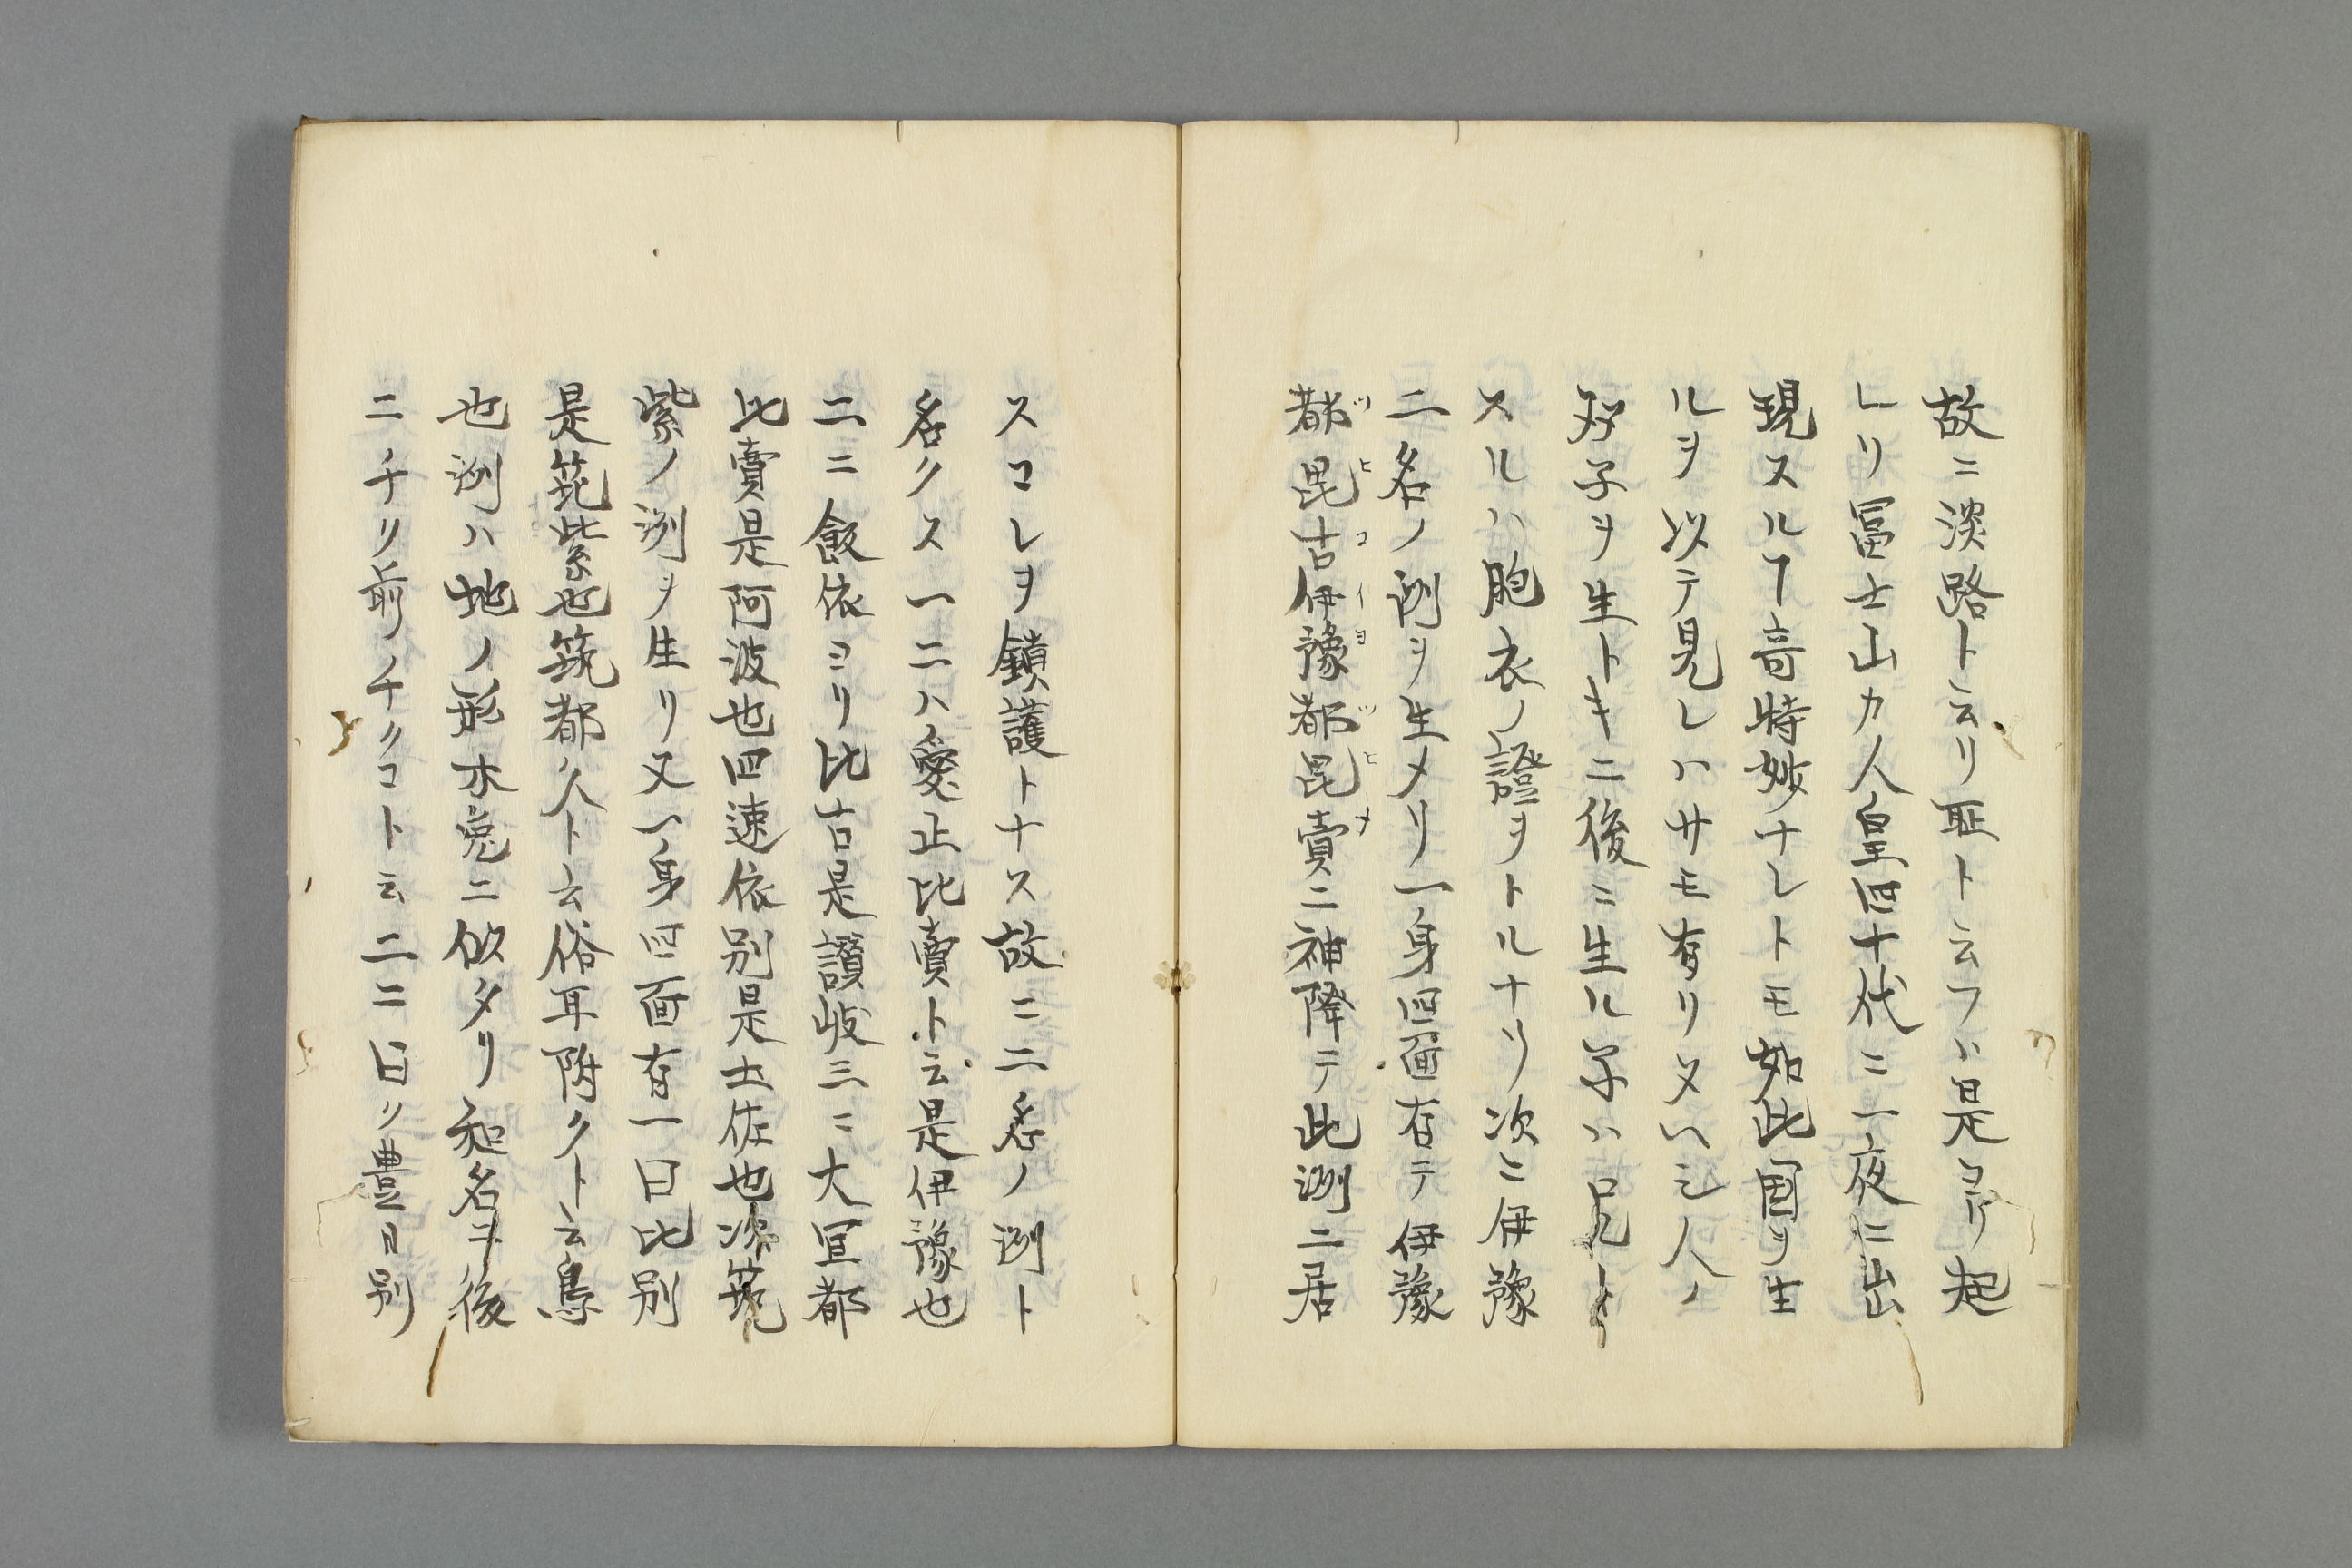 故ニ淡路ト云リ耻ト云フハ是ヨリ起
レリ冨士山カ人皇四十代ニ一夜ニ出
現スルヿ竒特妙ナレトモ始此國ヲ生
ルヲ以テ見レハサモ有リ又ヘシ人ノ
好子ヲ生トキニ後ニ生ル子ハ兄ト
スルハ胞衣ノ證ヲトルナリ次ニ伊豫
二名ノ洲ヲ生メリ一身四面有テ伊豫
都毘古伊豫都毘賣二神降テ此洲ニ居
スコレヲ鎮護トナス故ニ二名ノ洲ト
名クス一ニハ愛止比賣ト云是伊豫也
二ニ飯依ヨリ比古是讃岐三ニ大宜都
比賣是阿波也四速依別是土佐也次筑
紫ノ洲ヲ生リ又一身四面有一曰比別
是筑紫也筑都久ト云俗耳附クト云鳥
也洲ハ地ノ形木兎ニ似タリ和名ニ後
ニチリ前ノチクコト云二ニ曰ク豊日別